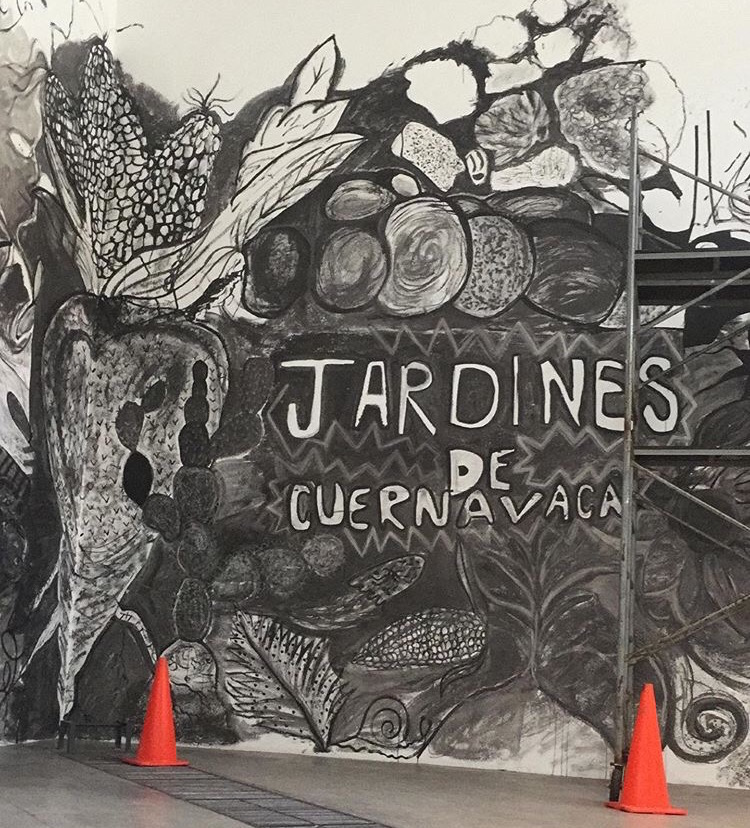 JARDINES
DE
CUERNAVACA